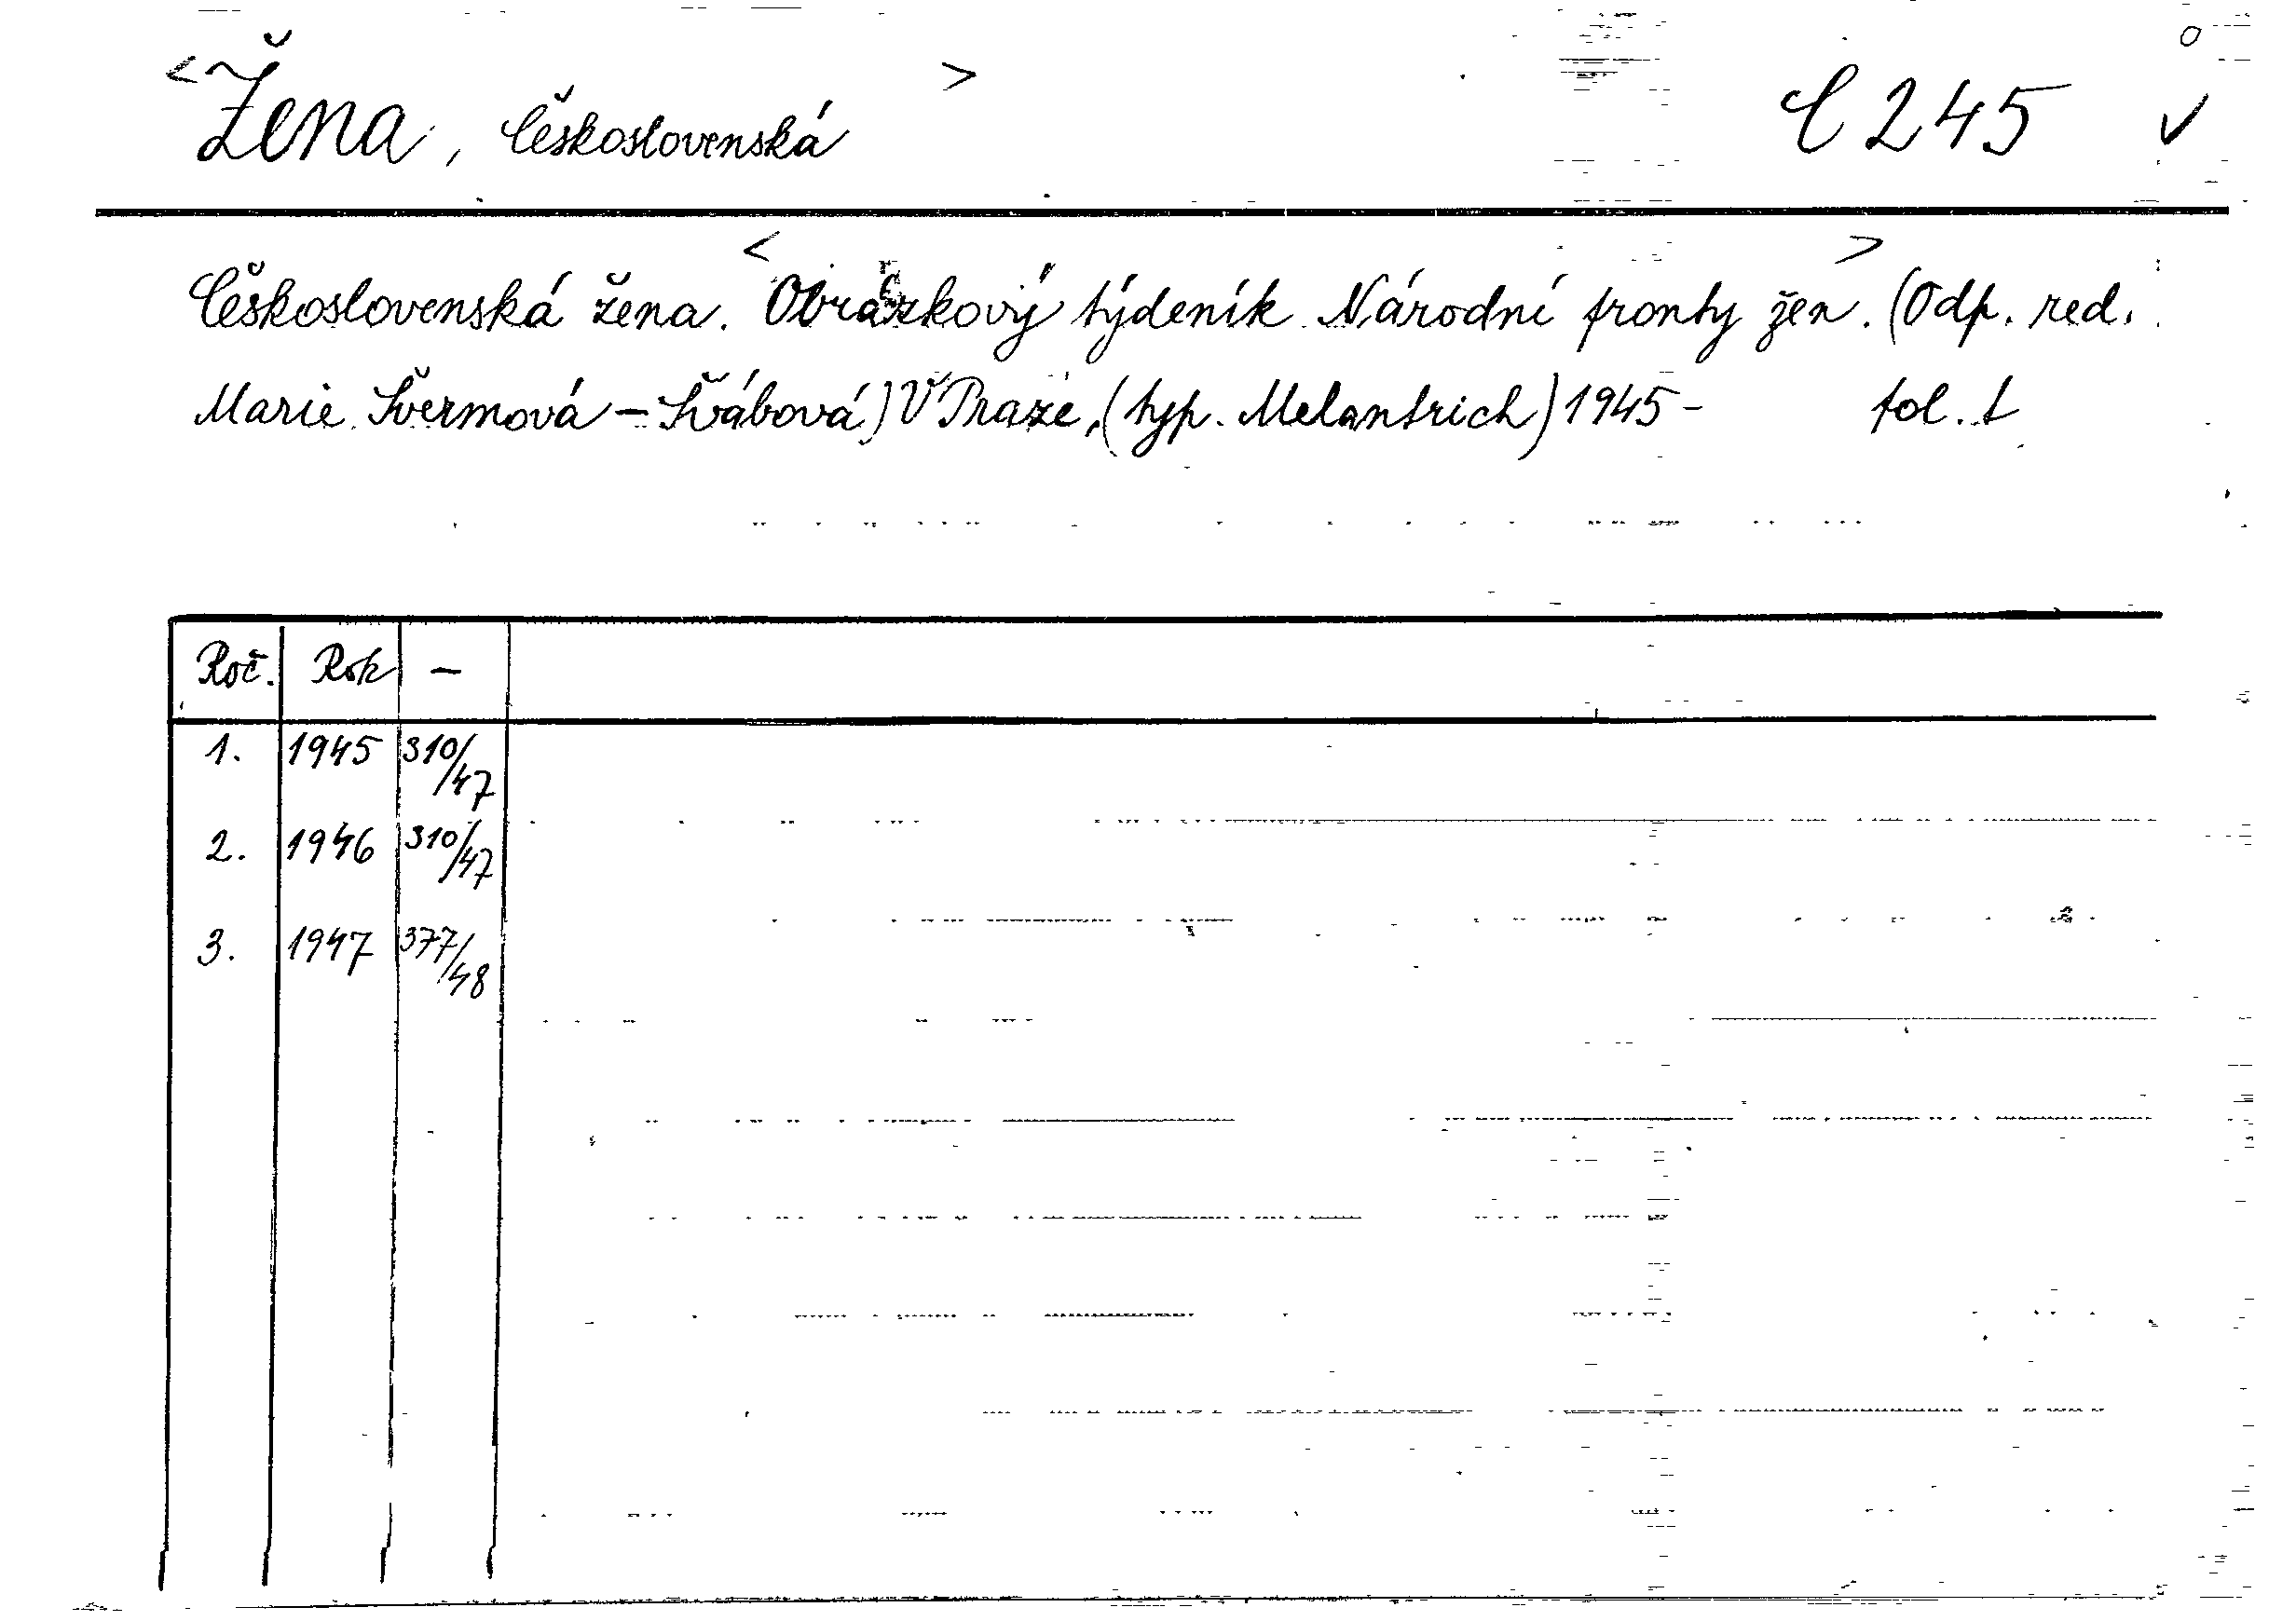 <Žena, Československá> C 245 ✓
Československá žena. <Obrázkový týdeník Národní fronty žen>. (Odp. red.
Marie Švermová – Švábová) V Praze, (typ. Melantrich) 1945 - fol. t
Roč. Rok –
1. 1945 310/47
2. 1946 310/47
3. 1947 377/48